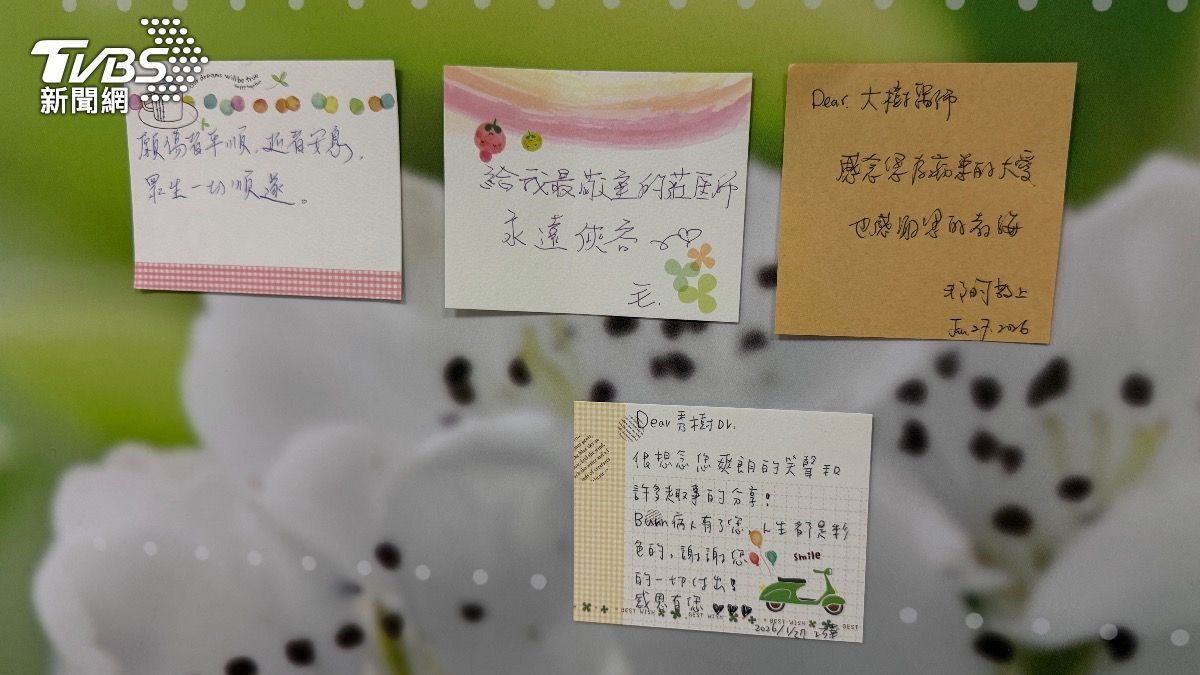 TVBS
新聞網
dreams will be true
happy together
願傷者平順、逝者安息、
眾生一切順遂。
給我最敬重的莊医師
永遠
毛.
Dear. 大樹醫師
感念您在病患的大愛
也感謝您的教誨
敬上
Jan 27. 2026
Dear 秀樹Dr.
很想念您爽朗的笑聲和
許多趣事的分享!
Burn病人有了您、人生都是彩
色的。謝謝您
的一切付出!
感恩有您
smile
BEST WISH BEST WISH BEST WISH BEST
2026/1/27